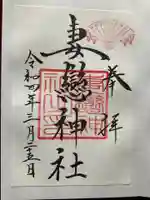 奉拝
妻戀神社
令和四年三月二十五日